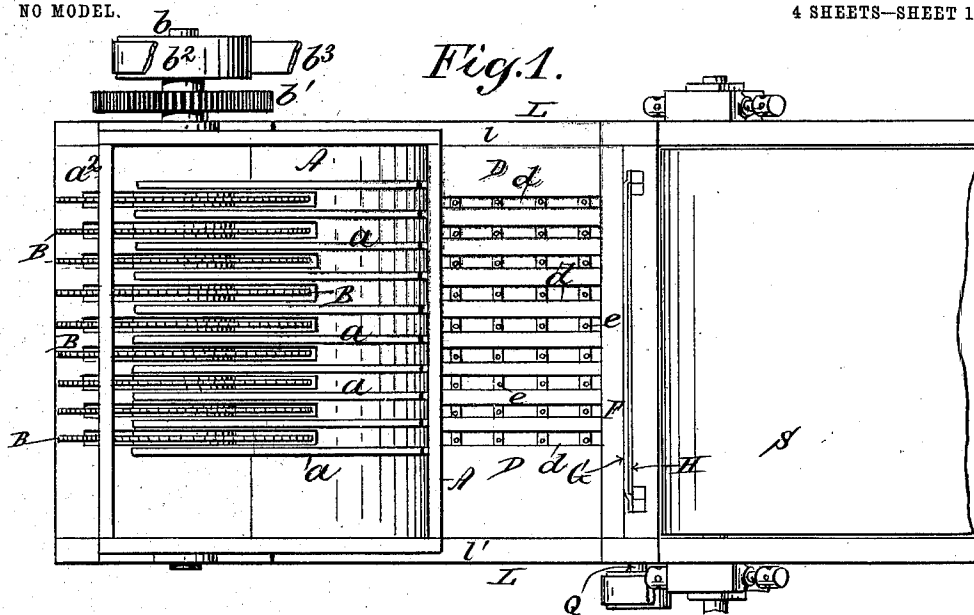 NO MODEL.
4 SHEETS—SHEET 1
Fig. 1.
b
b²
b³
b'
L
l
A
D
d
a²
B
a
d
B
B
a
e
a
e
F
B
a
A
D
d
G
H
S
l'
L
Q